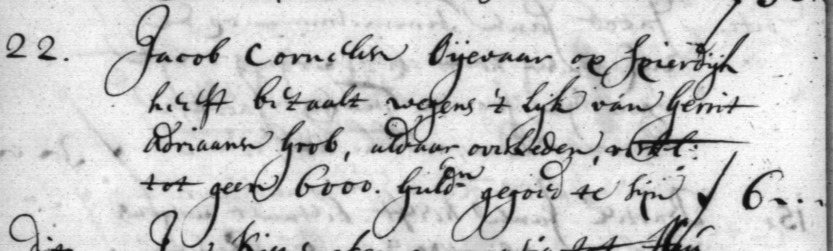 22. Jacob Cornelisn Bijevaar op Spierdijk
heeft betaalt wegens 't lijk van Gerrit
Adriaansn Grob, aldaar overleden,
tot geen 6000. Guldn gegoed te sijn ƒ 6